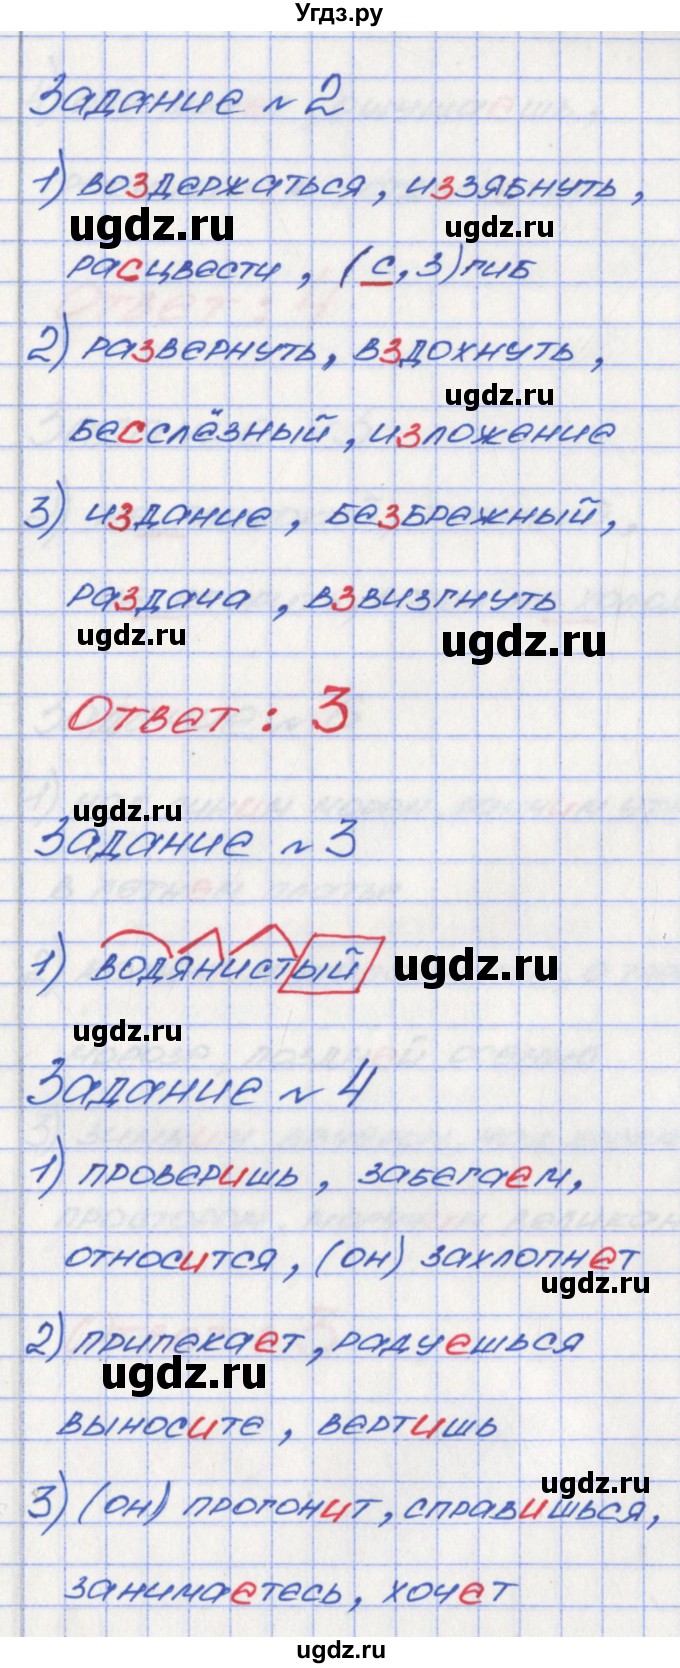 Угдз.ру
Задание № 2
1) воздержаться, иззябнуть,
ugdz.ru ugdz.ru
расцвести, (с,з)гиб
2) развернуть, вздохнуть,
ugdz.ru
бесслёзный, изложение
3) издание, безбрежный,
раздача, взвизгнуть
ugdz.ru ugdz.ru
Ответ: 3
ugdz.ru
Задание № 3
1) водянистый ugdz.ru
ugdz.ru
Задание № 4
1) проверишь, забегаем,
относится, (он) захлопнет
ugdz.ru
2) припекает, радуешься
ugdz.ru
выносите, вертишь
ugdz.ru
3) (он) прогонит, справишься,
занимаетесь, хочет
ugdz.ru